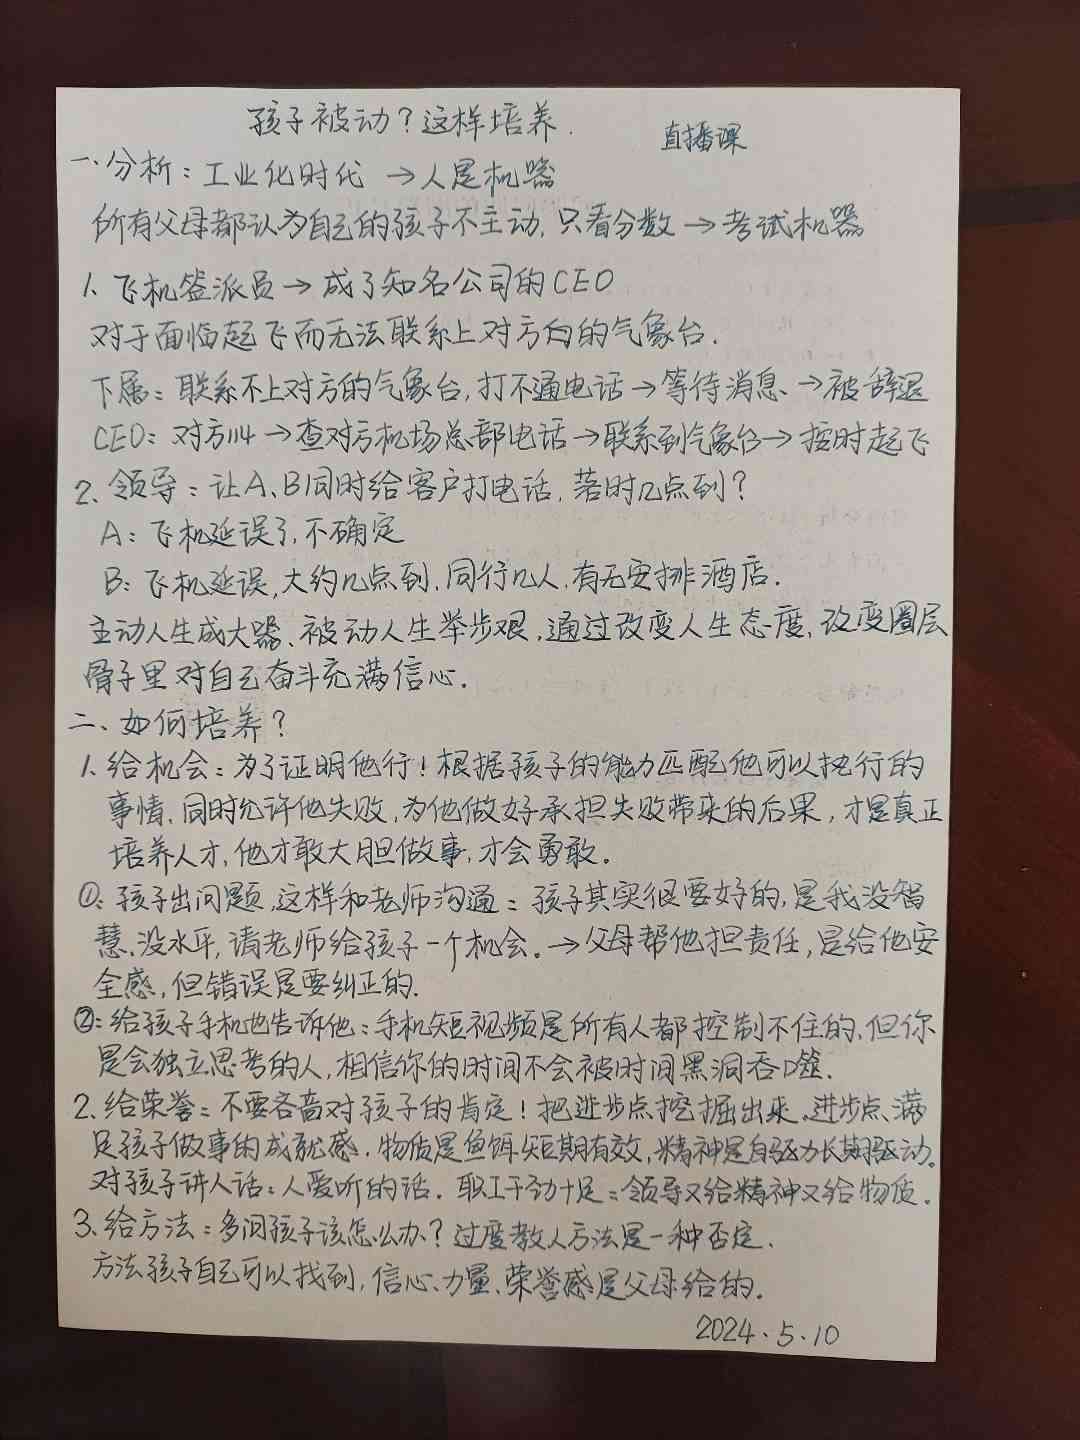 孩子被动？这样培养.
直播课
一、分析：工业化时代 →人是机器
所有父母都认为自己的孩子不主动，只看分数→考试机器
1、飞机签派员→成了知名公司的CEO
对于面临起飞而无法联系上对方向的气象台.
下属：联系不上对方的气象台，打不通电话→等待消息→被辞退
CEO：对方→查对方机场总部电话→联系到气象台→按时起飞
2、领导：让A、B同时给客户打电话，落时几点到？
A：飞机延误了，不确定
B：飞机延误，大约几点到，同行几人，有无安排酒店.
主动人生成大器、被动人生举步艰，通过改变人生态度，改变圈层
骨子里对自己奋斗充满信心.
二、如何培养？
1、给机会：为了证明他行！根据孩子的能力匹配他可以执行的
事情，同时允许他失败，为他做好承担失败带来的后果，才是真正
培养人才，他才敢大胆做事，才会勇敢。
①：孩子出问题，这样和老师沟通：孩子其实很要好的，是我没智
慧、没水平，请老师给孩子一个机会。→父母帮他担责任，是给他安
全感，但错误是要纠正的.
②：给孩子手机也告诉他：手机短视频是所有人都控制不住的，但你
是会独立思考的人，相信你的时间不会被时间黑洞吞噬.
2、给荣誉：不要吝啬对孩子的肯定！把进步点挖掘出来、进步点满
足孩子做事的成就感，物质是鱼饵短期有效，精神是自驱力长期驱动。
对孩子讲人话：人爱听的话. 职工干劲十足：领导又给精神又给物质.
3、给方法：多问孩子该怎么办？过度教人方法是一种否定.
方法孩子自己可以找到，信心、力量、荣誉感是父母给的.
2024.5.10